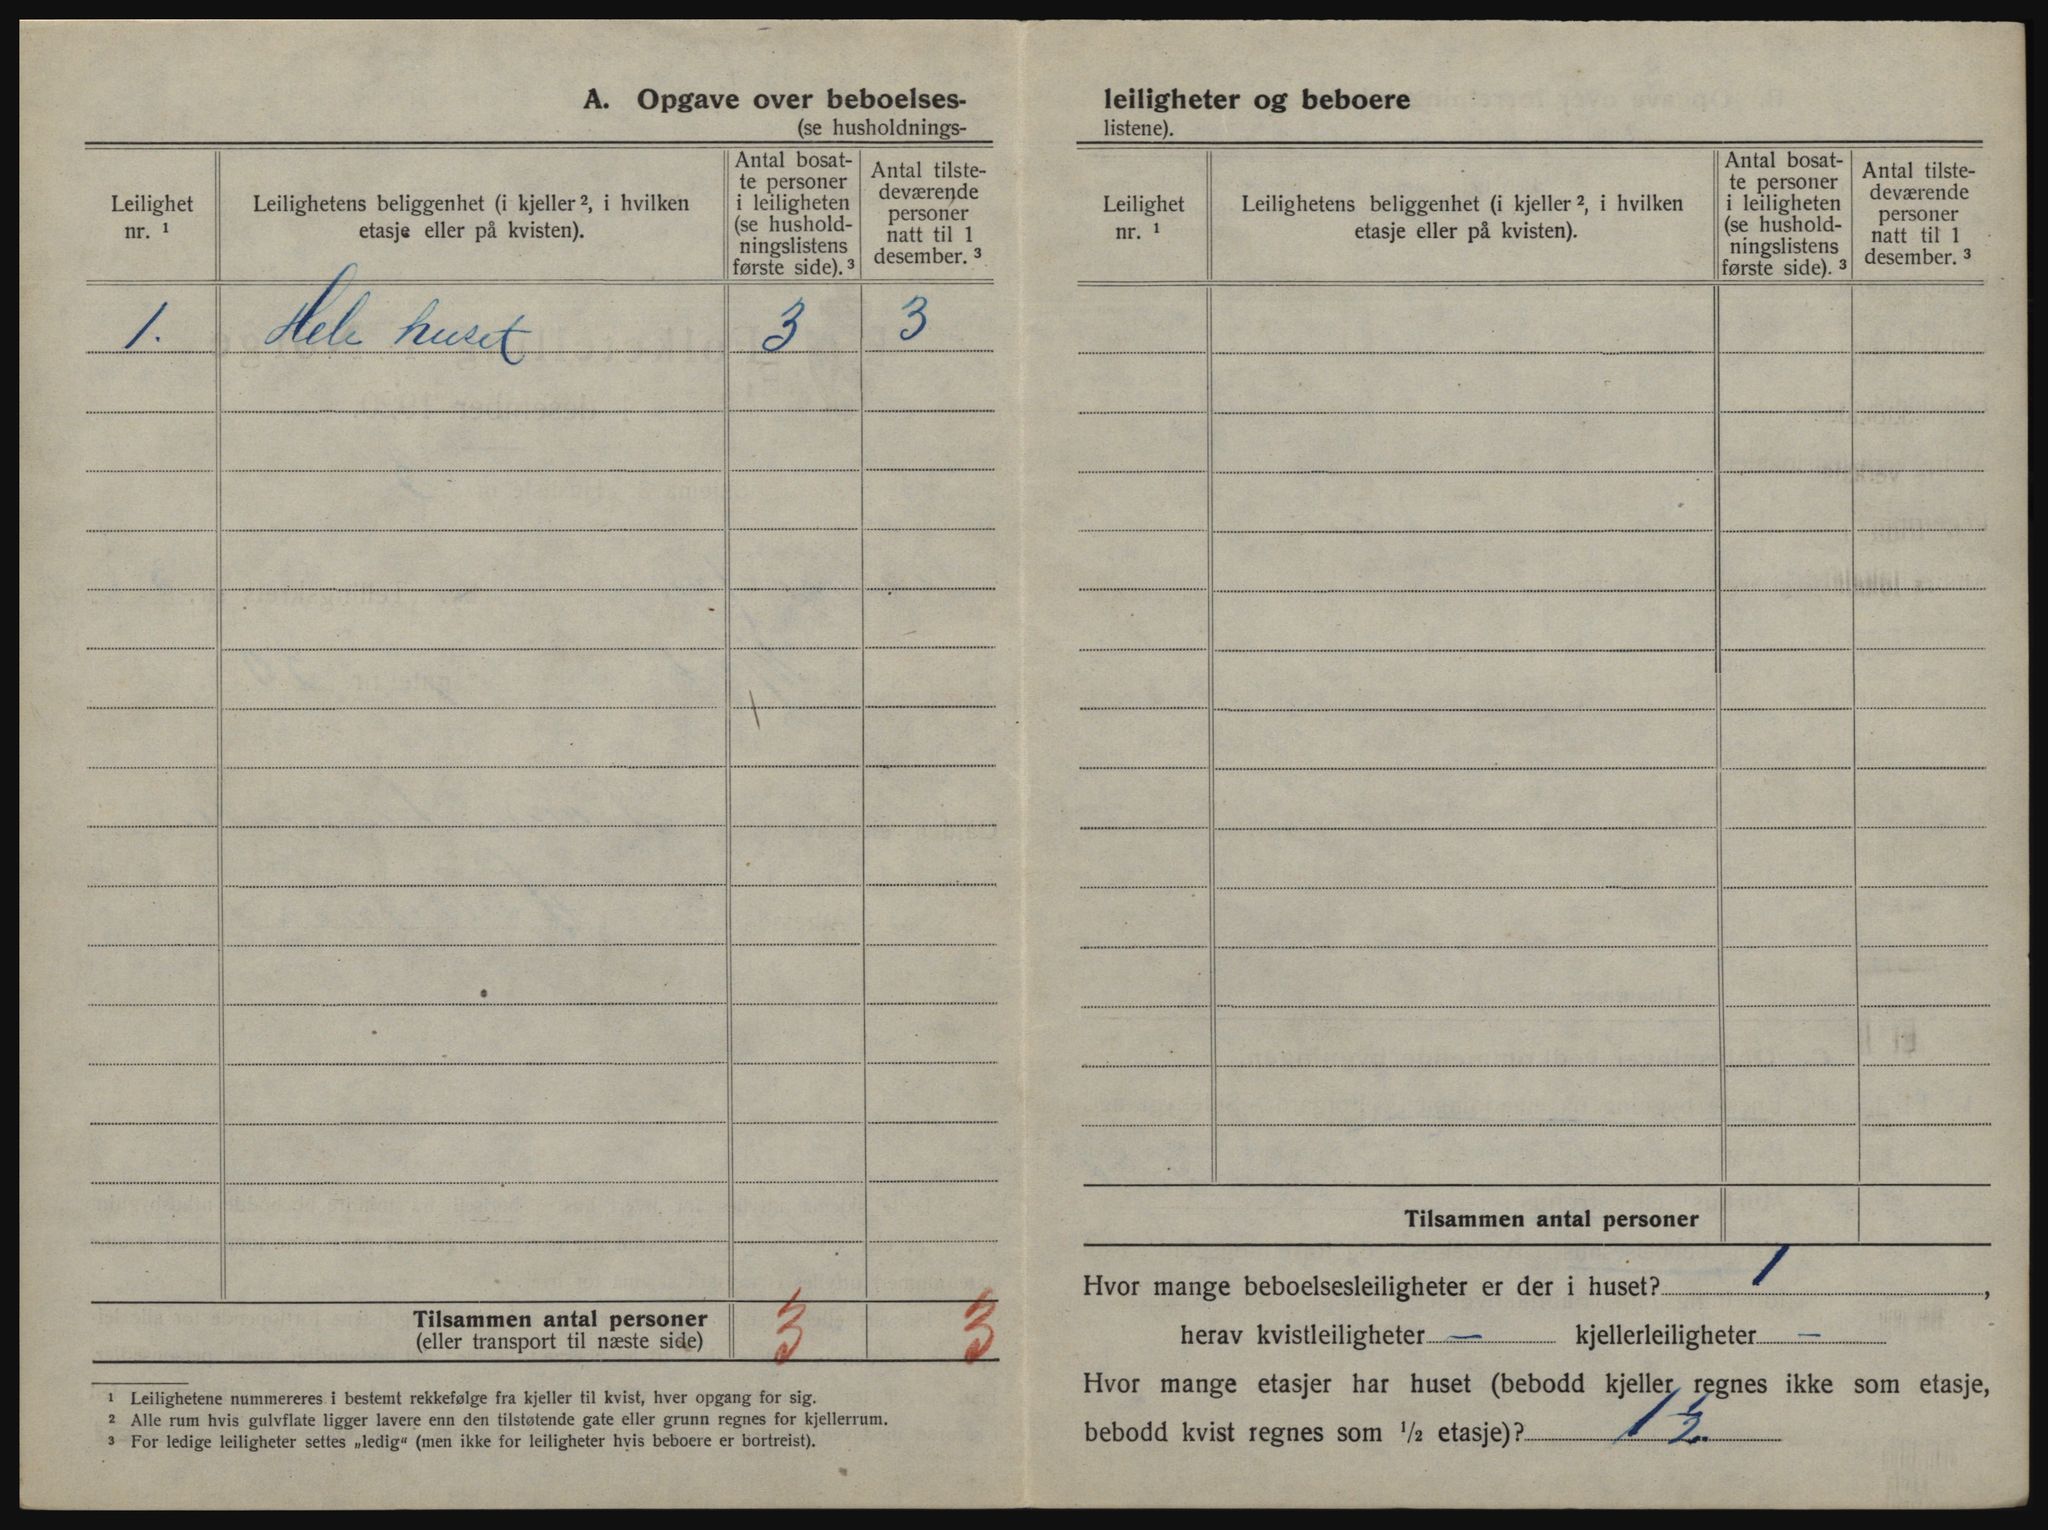 A. Opgave over beboelses-
(se husholdnings-
Leilighet
nr. ¹
Leilighetens beliggenhet (i kjeller ², i hvilken
etasje eller på kvisten).
Antal bosat-
te personer
i leiligheten
(se hushold-
ningslistens
første side). ³
Antal tilste-
deværende
personer
natt til 1
desember. ³
1. Hele huset 3 3
Tilsammen antal personer 3 3
(eller transport til næste side)
¹ Leilighetene nummereres i bestemt rekkefølge fra kjeller til kvist, hver opgang for sig.
² Alle rum hvis gulvflate ligger lavere enn den tilstøtende gate eller grunn regnes for kjellerrum.
³ For ledige leiligheter settes „ledig“ (men ikke for leiligheter hvis beboere er bortreist).
leiligheter og beboere
listene).
Leilighet
nr. ¹
Leilighetens beliggenhet (i kjeller ², i hvilken
etasje eller på kvisten).
Antal bosat-
te personer
i leiligheten
(se hushold-
ningslistens
første side). ³
Antal tilste-
deværende
personer
natt til 1
desember. ³
Tilsammen antal personer
Hvor mange beboelsesleiligheter er der i huset? 1,
herav kvistleiligheter — kjellerleiligheter —
Hvor mange etasjer har huset (bebodd kjeller regnes ikke som etasje,
bebodd kvist regnes som ½ etasje)? 1½